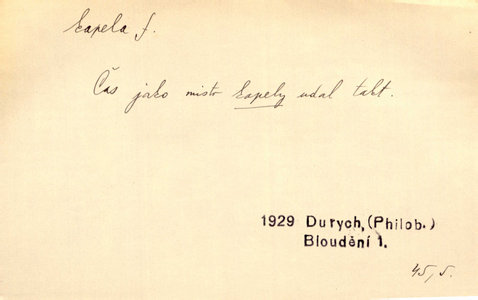 kapela f.
Čas jako místo kapely udal takt.
1929 Durych, (Philob.)
Bloudění 1.
45, 5.